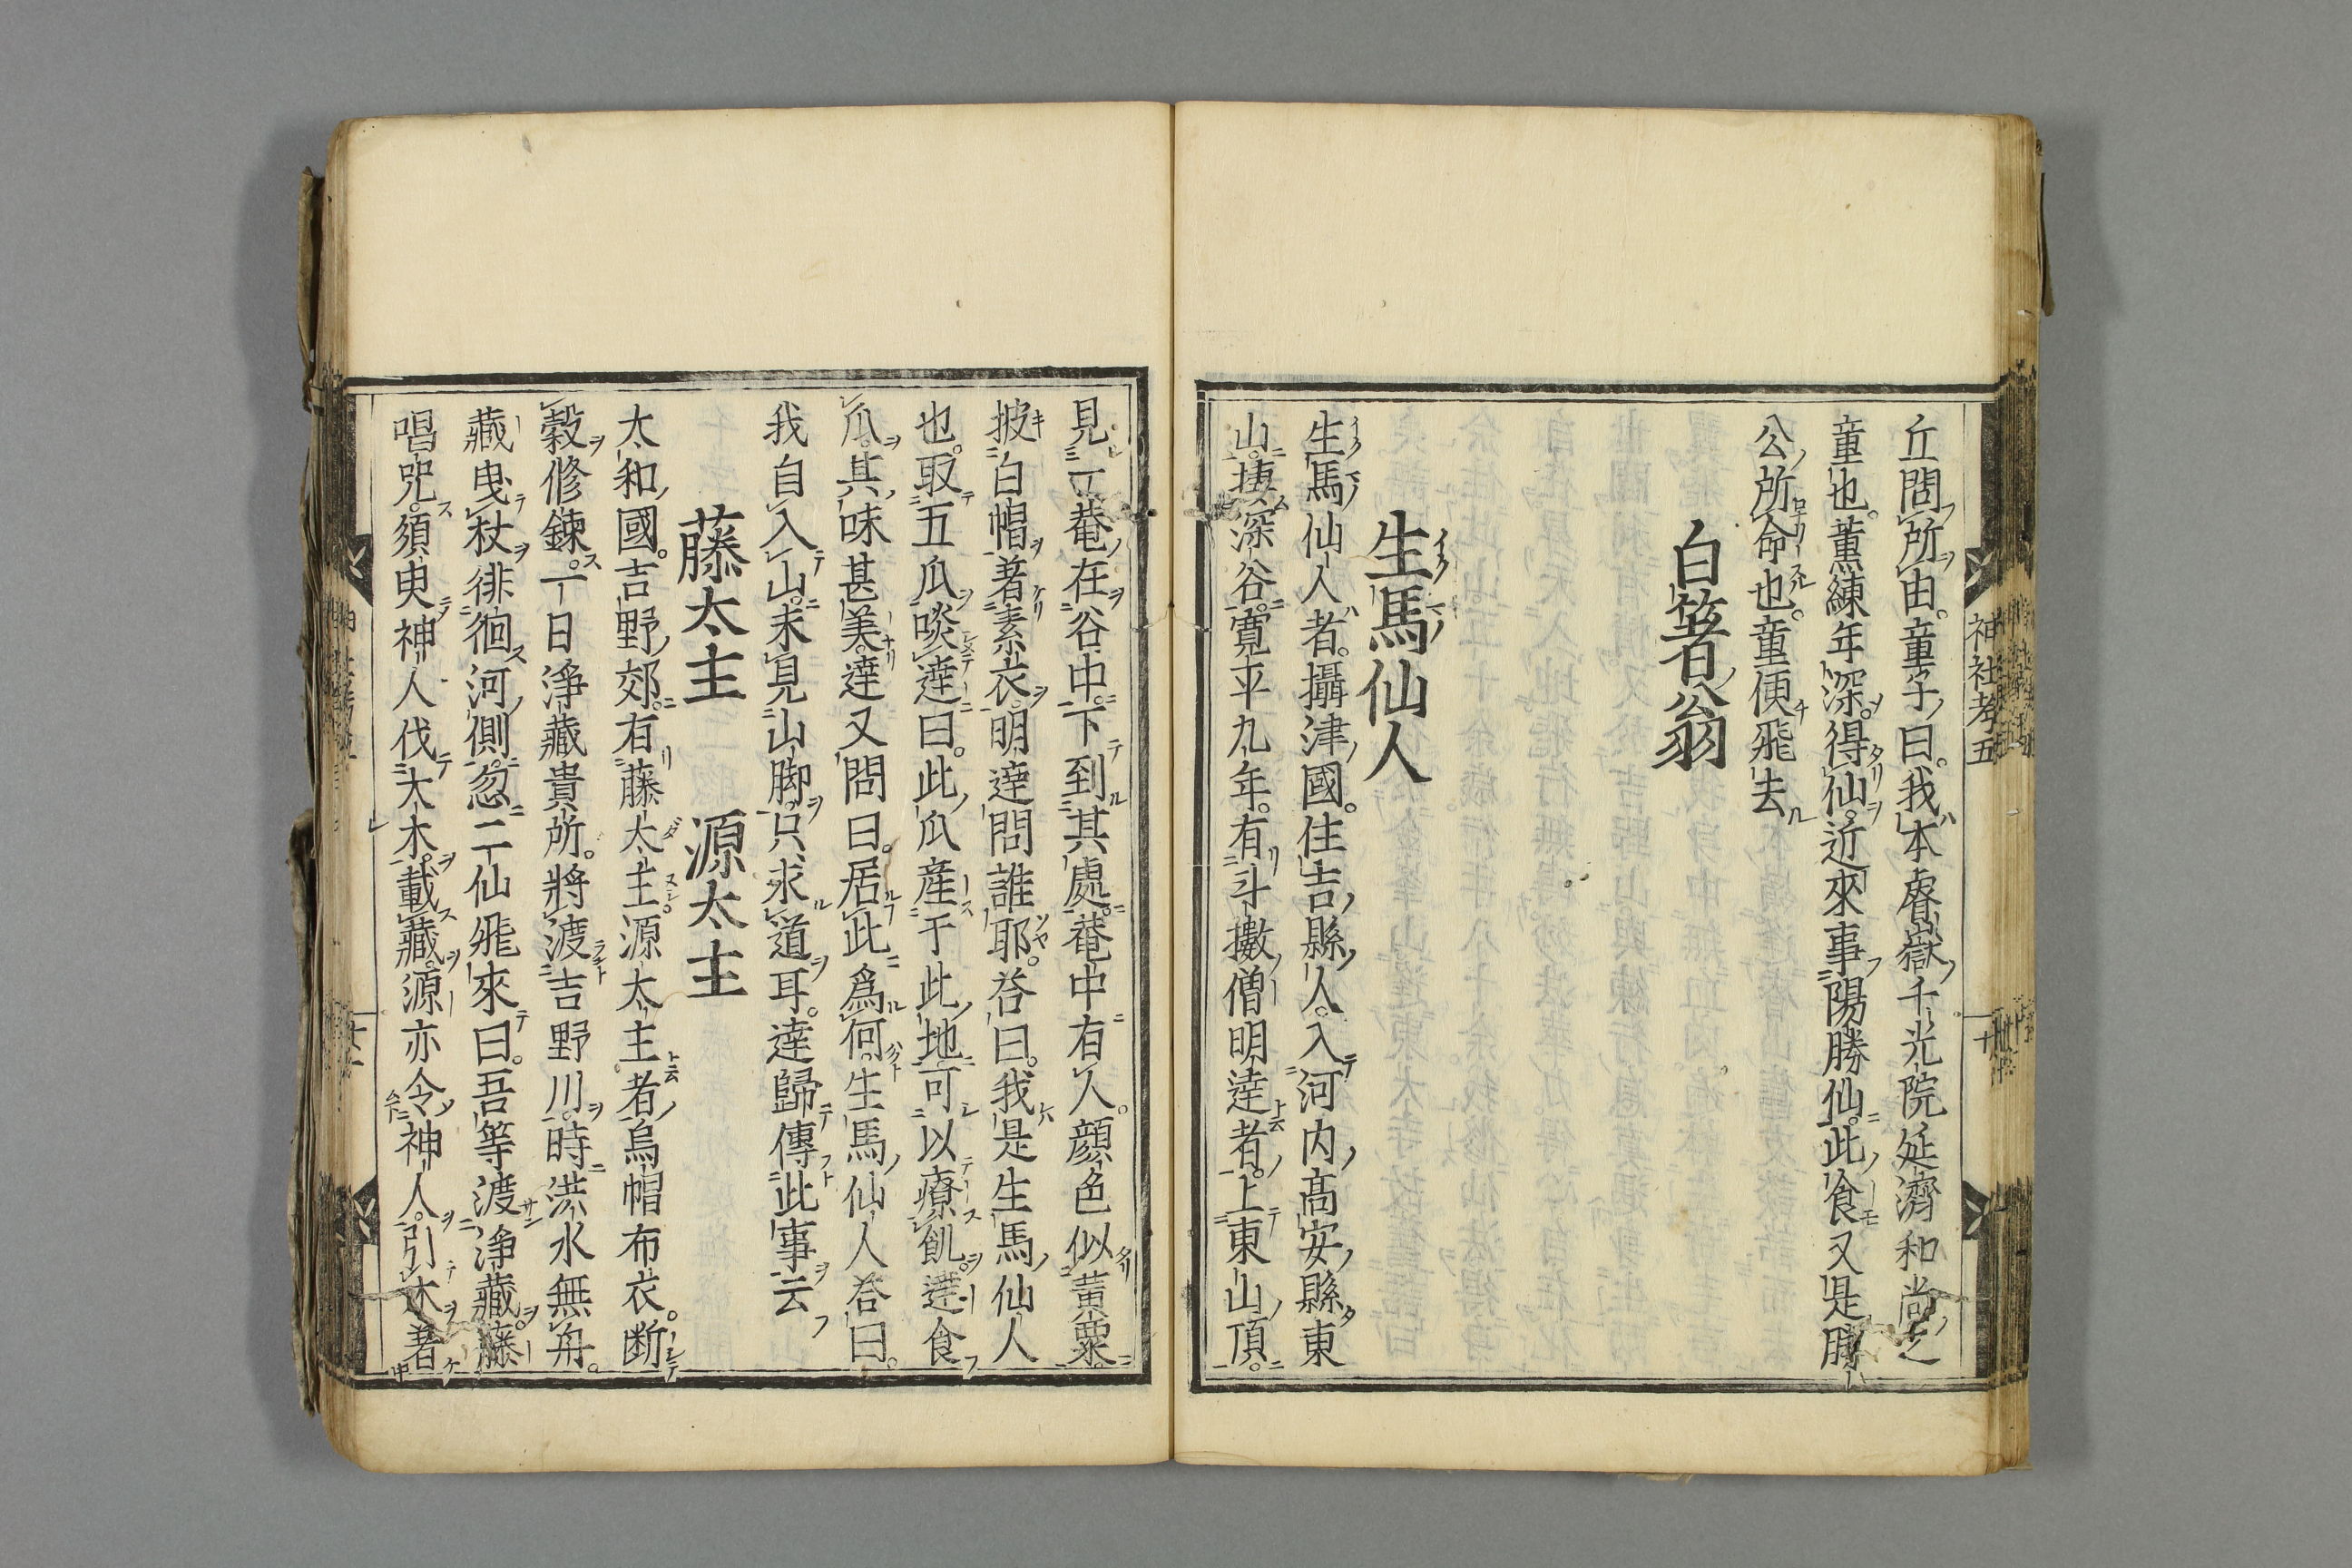 丘問所由。童子曰。我本睿嶽千光院延濟和尚之
童也。薰練年深。得仙。近來事陽勝仙。此食又是勝
公所命也。童便飛去
白箸翁
生馬仙人
生馬仙人者。攝津國。住吉縣人。入河内高安縣東
山。棲深谷。寛平九年。有斗擻僧明達者。上東山頂。
見一菴在谷中。下到其處。菴中有人。顔色似黃粟。
披白帽著素衣。明達問誰耶。答曰。我是生馬仙人
也。取五瓜啖達曰。此瓜産于此地。可以療飢。達食
瓜。其味甚美。達又問曰。居此爲何。生馬仙人答曰。
我自入山。未見山脚。只求道耳。達歸傳此事云
藤太主　源太主
太和國。吉野郊。有藤太主源太主者。烏帽布衣。断
穀修錬。一日淨藏貴所。將渡吉野川。時洪水無舟。
藏曳杖徘徊河側。忽二仙飛來曰。吾等渡淨藏。藤
唱咒。須臾神人伐大木。載藏。源亦令神人。引木著
神社考五
十